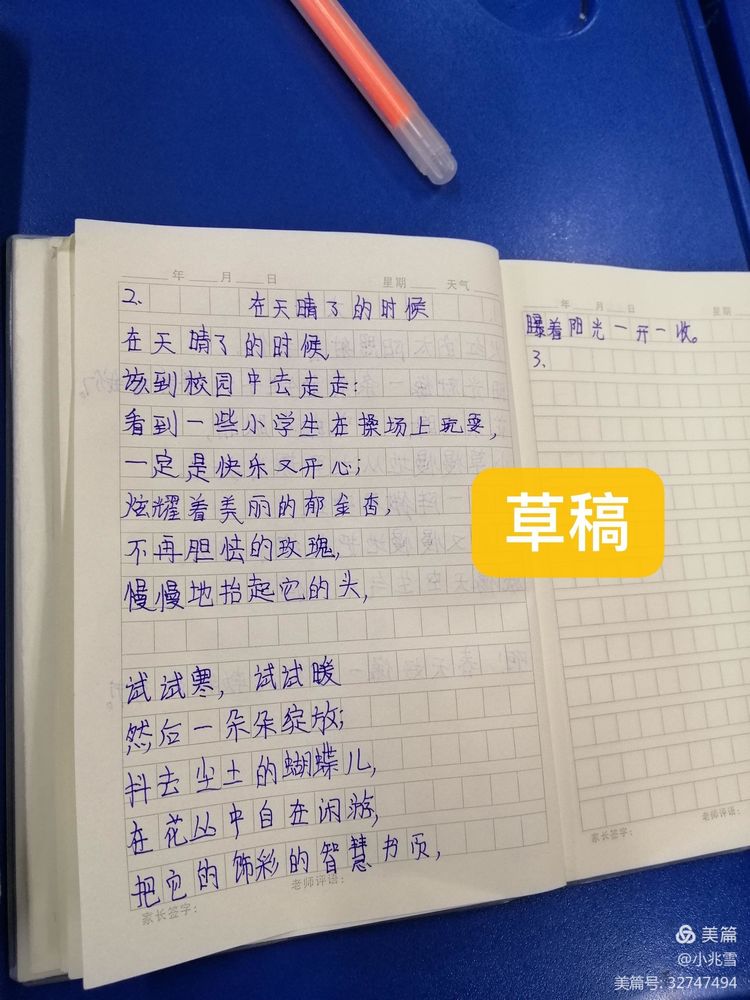 年 月 日 星期 天气
2、 在天晴了的时候
在天晴了的时候,
该到校园中去走走:
看到一些小学生在操场上玩耍,
一定是快乐又开心;
炫耀着美丽的郁金香,
不再胆怯的玫瑰,
慢慢地抬起它的头,
试试寒, 试试暖
然后一朵朵绽放;
抖去尘土的蝴蝶儿,
在花丛中自在闲游,
把它的饰彩的智慧书页,
家长签字: 老师评语:
年 月 日
曝着阳光一开一收。
3、
家长签字: 老师评语:
草稿
美篇
@小兆雪
美篇号: 32747494